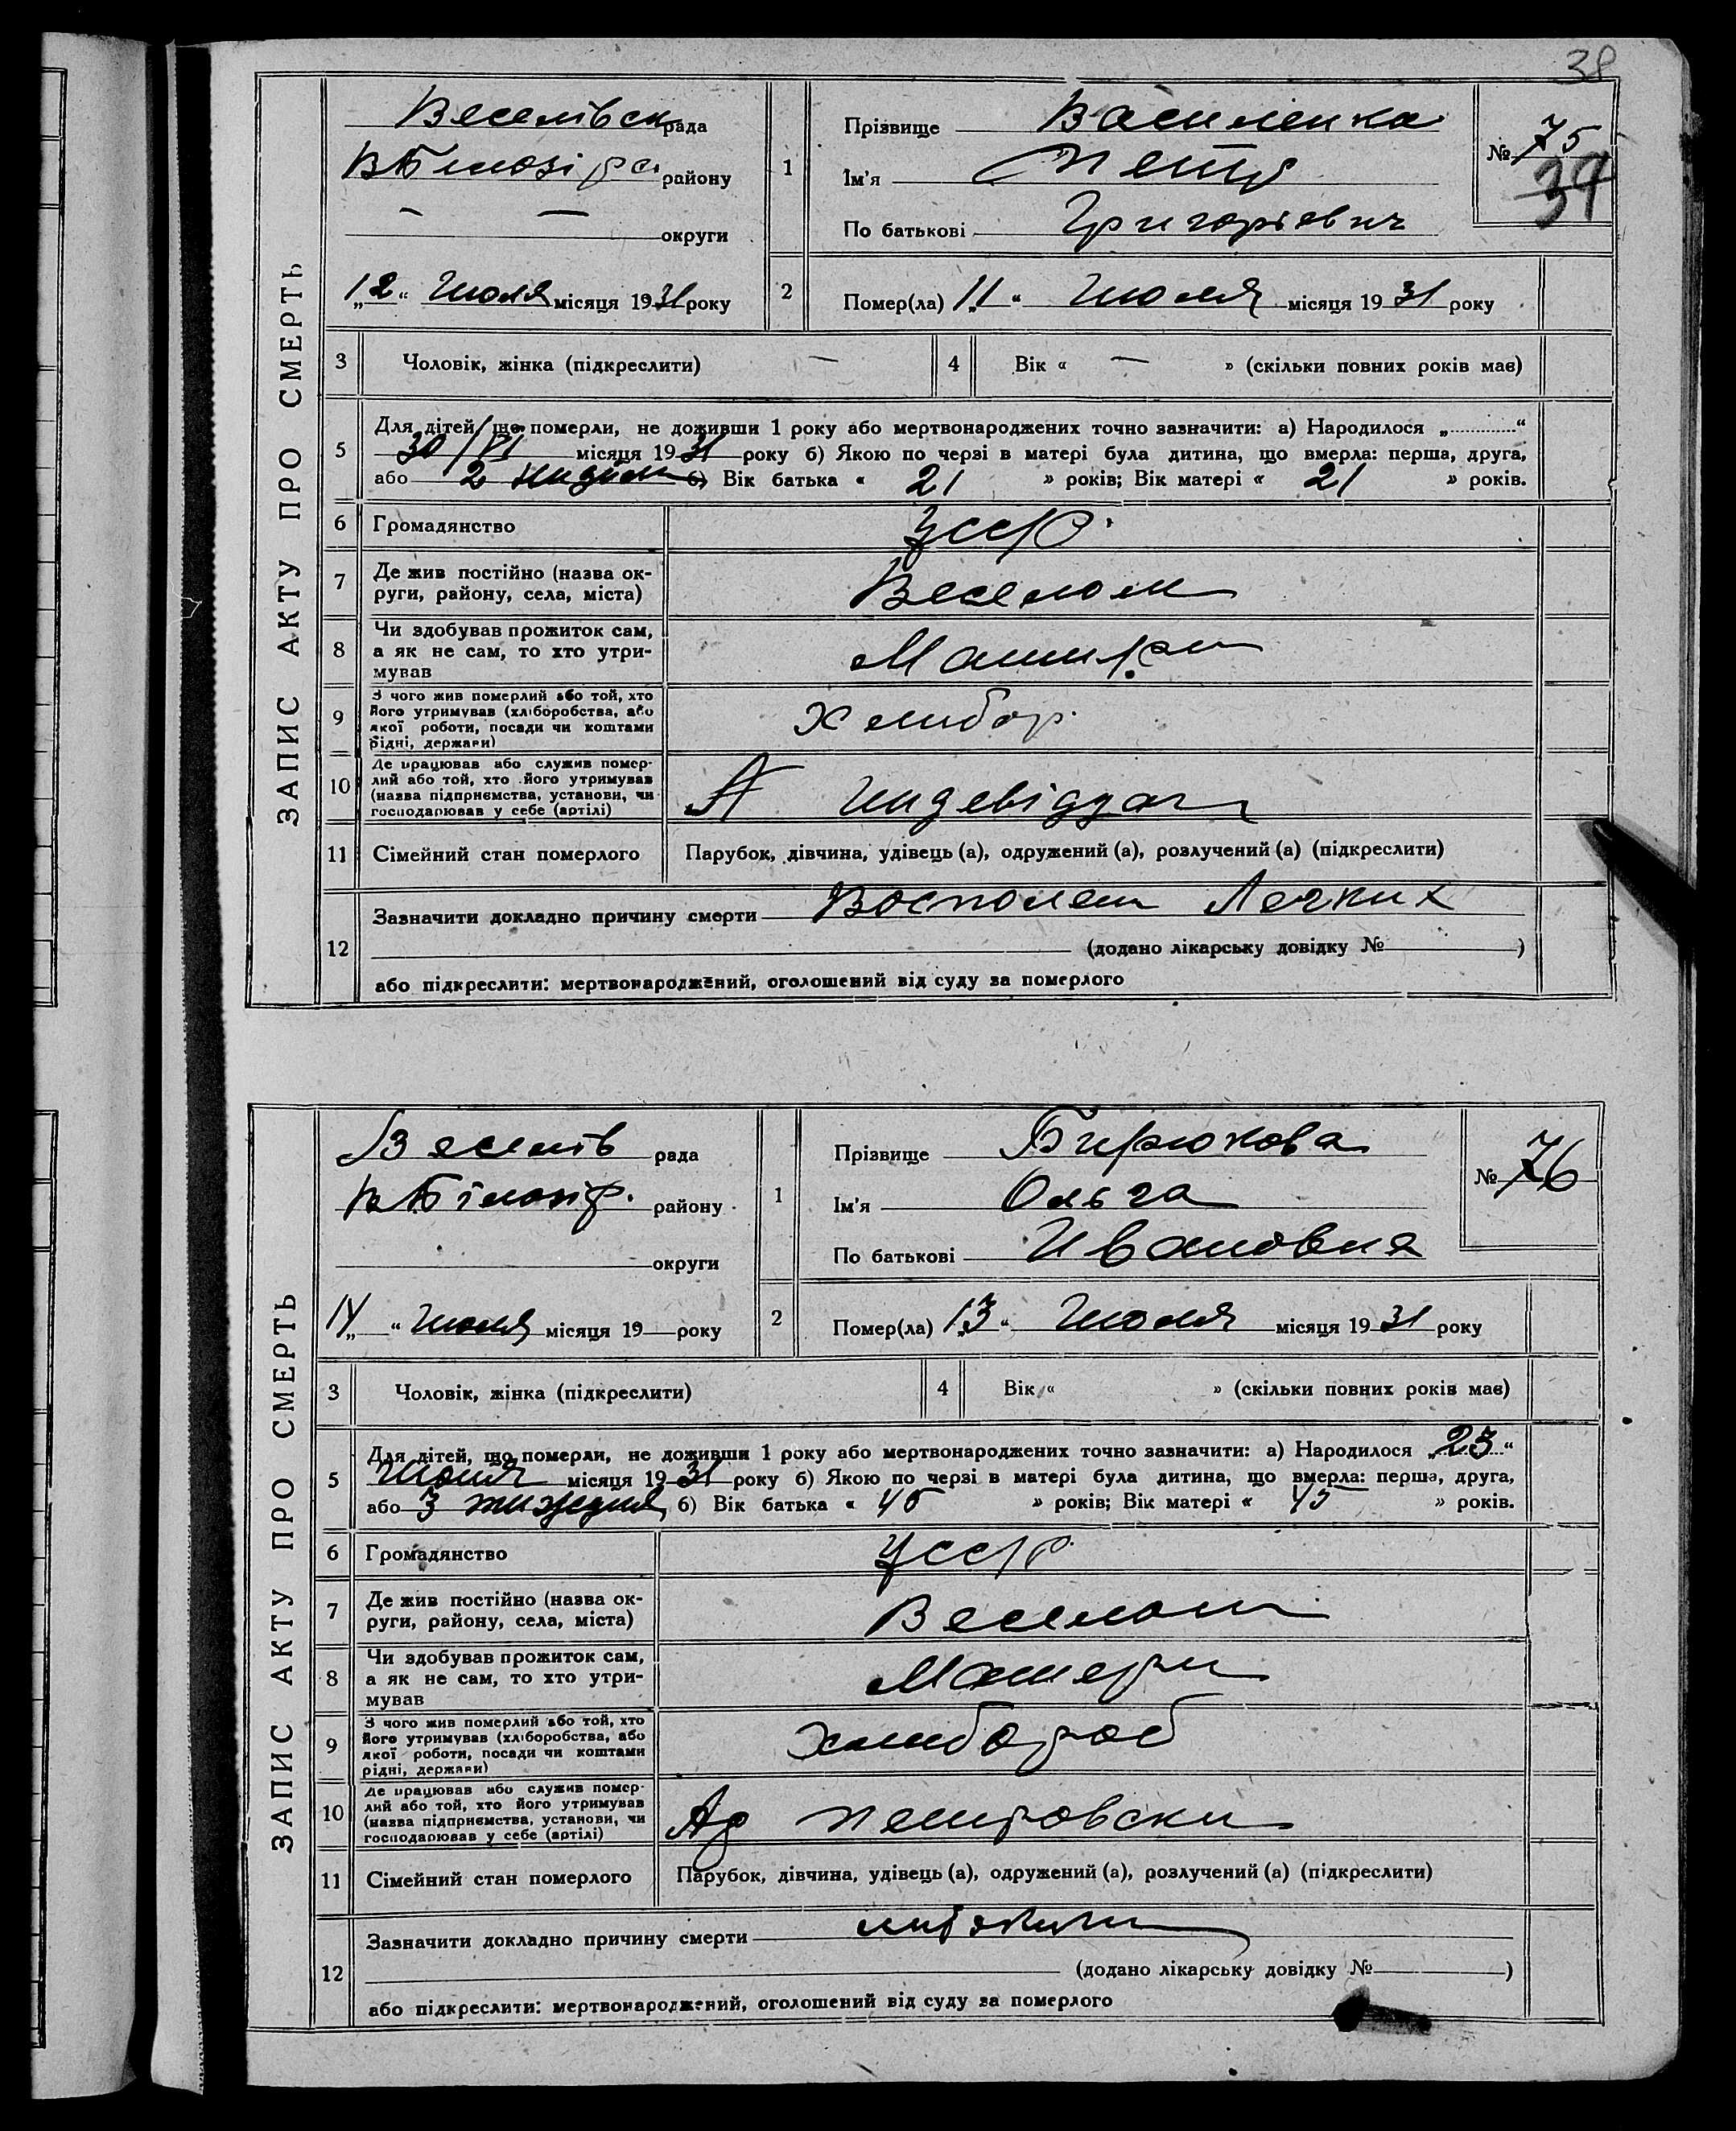 38
ЗАПИС АКТУ ПРО СМЕРТЬ
Веселівск рада
ВБілозірс району
— — округи
1
Прізвище Василенко
Ім'я Петр
По батькові Григорієвич
№ 75
39
„12“ Июля місяця 1931 року
2
Помер(ла) „11“ Июля місяця 1931 року
3 Чоловік, жінка (підкреслити) —
4 Вік « — » (скільки повних років має)
5 Для дітей, що померли, не доживши 1 року або мертвонароджених точно зазначити: а) Народилося „ “
30/VI місяця 1931 року б) Якою по черзі в матері була дитина, що вмерла: перша, друга,
або 2 б) Вік батька « 21 » років; Вік матері « 21 » років.
6 Громадянство УССР
7 Де жив постійно (назва ок-
руги, району, села, міста) Веселом
8 Чи здобував прожиток сам,
а як не сам, то хто утри-
мував Матири
9 З чого жив померлий або той, хто
його утримував (хліборобства, або
якої роботи, посади чи коштами
рідні, держави) Хлибор
10 Де працював або служив помер-
лий або той, хто його утримував
(назва підприємства, установи, чи
господарював у себе (артілі)
11 Сімейний стан померлого Парубок, дівчина, удівець (а), одружений (а), розлучений (а) (підкреслити)
12 Зазначити докладно причину смерти Восполени Легких
(додано лікарську довідку № )
або підкреслити: мертвонароджений, оголошений від суду за померлого
ЗАПИС АКТУ ПРО СМЕРТЬ
Веселів рада
ВБілозір. району
округи
1
Прізвище Бирюкова
Ім'я Ольга
По батькові Ивановна
№ 76
„14“ Июля місяця 19 року
2
Помер(ла) „13“ Июля місяця 1931 року
3 Чоловік, жінка (підкреслити)
4 Вік « » (скільки повних років має)
5 Для дітей, що померли, не доживши 1 року або мертвонароджених точно зазначити: а) Народилося „23“
Июня місяця 1931 року б) Якою по черзі в матері була дитина, що вмерла: перша, друга,
або 3 тижедня б) Вік батька « 45 » років; Вік матері « 45 » років.
6 Громадянство УССР
7 Де жив постійно (назва ок-
руги, району, села, міста) Веселом
8 Чи здобував прожиток сам,
а як не сам, то хто утри-
мував Матери
9 З чого жив померлий або той, хто
його утримував (хліборобства, або
якої роботи, посади чи коштами
рідні, держави) хлибороб
10 Де працював або служив помер-
лий або той, хто його утримував
(назва підприємства, установи, чи
господарював у себе (артілі) Ар Петровски
11 Сімейний стан померлого Парубок, дівчина, удівець (а), одружений (а), розлучений (а) (підкреслити)
12 Зазначити докладно причину смерти
(додано лікарську довідку № )
або підкреслити: мертвонароджений, оголошений від суду за померлого